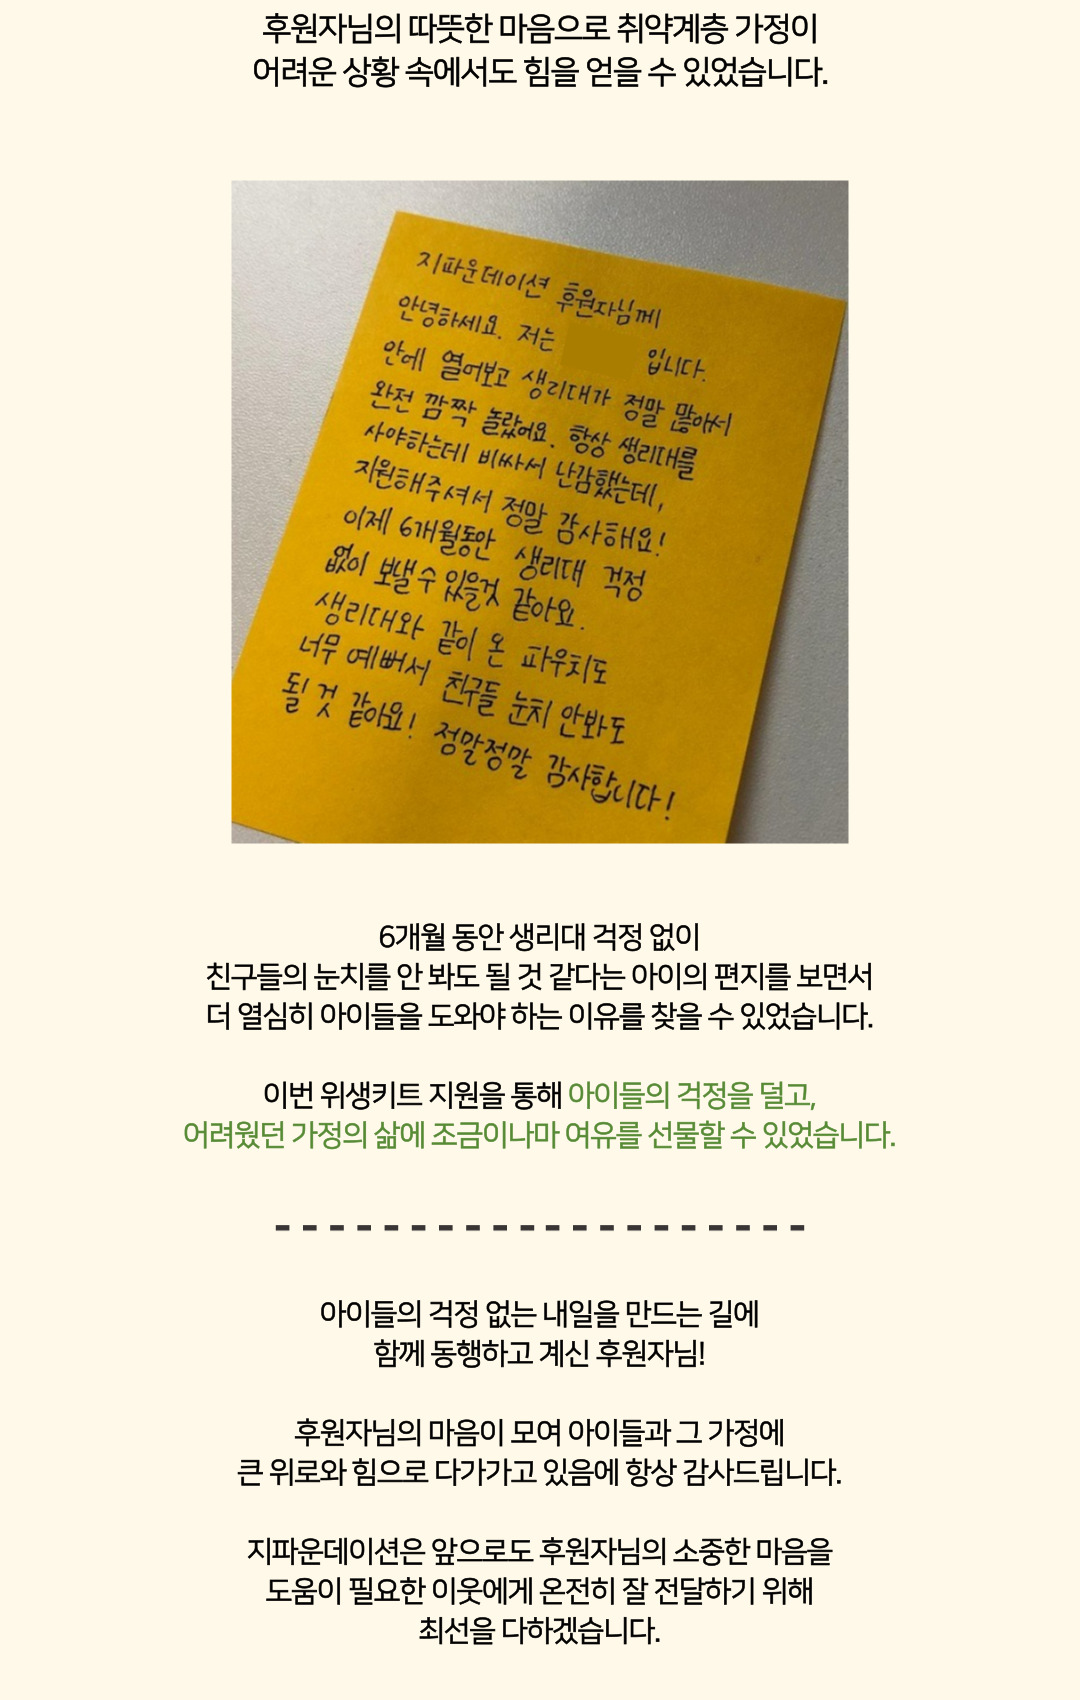 후원자님의 따뜻한 마음으로 취약계층 가정이
어려운 상황 속에서도 힘을 얻을 수 있었습니다.
지파운데이션 후원자님께
안녕하세요. 저는 입니다.
안에 열어보고 생리대가 정말 많아서
완전 깜짝 놀랐어요. 항상 생리대를
사야하는데 비싸서 난감했는데,
지원해주셔서 정말 감사해요!
이제 6개월동안 생리대 걱정
없이 보낼수 있을것 같아요.
생리대와 같이 온 파우치도
너무 예뻐서 친구들 눈치 안봐도
될 것 같아요! 정말정말 감사합니다!
6개월 동안 생리대 걱정 없이
친구들의 눈치를 안 봐도 될 것 같다는 아이의 편지를 보면서
더 열심히 아이들을 도와야 하는 이유를 찾을 수 있었습니다.
이번 위생키트 지원을 통해 아이들의 걱정을 덜고,
어려웠던 가정의 삶에 조금이나마 여유를 선물할 수 있었습니다.
아이들의 걱정 없는 내일을 만드는 길에
함께 동행하고 계신 후원자님!
후원자님의 마음이 모여 아이들과 그 가정에
큰 위로와 힘으로 다가가고 있음에 항상 감사드립니다.
지파운데이션은 앞으로도 후원자님의 소중한 마음을
도움이 필요한 이웃에게 온전히 잘 전달하기 위해
최선을 다하겠습니다.